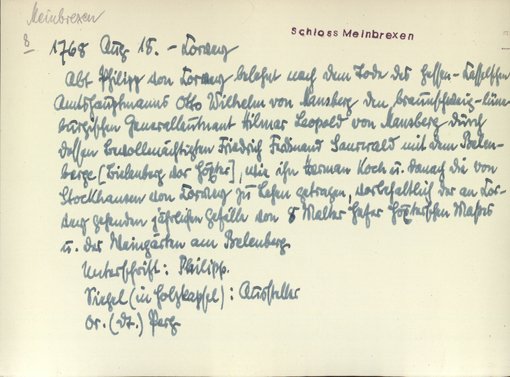 Meinbrexen
8
Schloss Meinbrexen
1768 Aug 15. - Corvey
Abt Philipp von Corvey belehnt nach dem Tode des Hessen-Kasselschen
Amtshauptmanns Otto Wilhelm von Mansberg den braunschweig-lüne-
burgischen Generalleutnant Hilmar Leopold von Mansberg durch
dessen Bevollmächtigten Friedrich Ferdinand mit dem Bielen-
berge [Bielenberg vor Höxter], wie ihn Herman Koch u. danach die von
Stockhausen von Corvey zu Lehen getragen, vorbehaltlich der an Cor-
vey gehenden jährlichen Gefälle von 8 Malter Hafer Höxterschen Maßes
u. der Weingärten am Bielenberg.
Unterschrift: Philipp.
Siegel (in Holzkapsel): Aussteller
Or. (dt.) Perg.